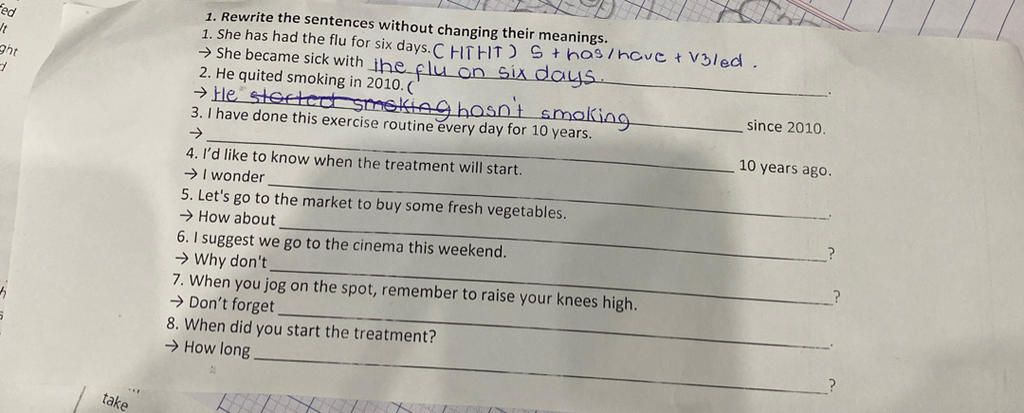 fed
lt
ght
d
1. Rewrite the sentences without changing their meanings.
1. She has had the flu for six days. ( HTHT ) S + has/have + V3/ed .
→ She became sick with the flu on six days. .
2. He quited smoking in 2010. (
→ He started smoking hasn't smoking since 2010.
3. I have done this exercise routine every day for 10 years.
→ 10 years ago.
4. I'd like to know when the treatment will start.
→ I wonder .
5. Let's go to the market to buy some fresh vegetables.
→ How about ?
6. I suggest we go to the cinema this weekend.
→ Why don't ?
7. When you jog on the spot, remember to raise your knees high.
→ Don't forget .
8. When did you start the treatment?
→ How long ?
take